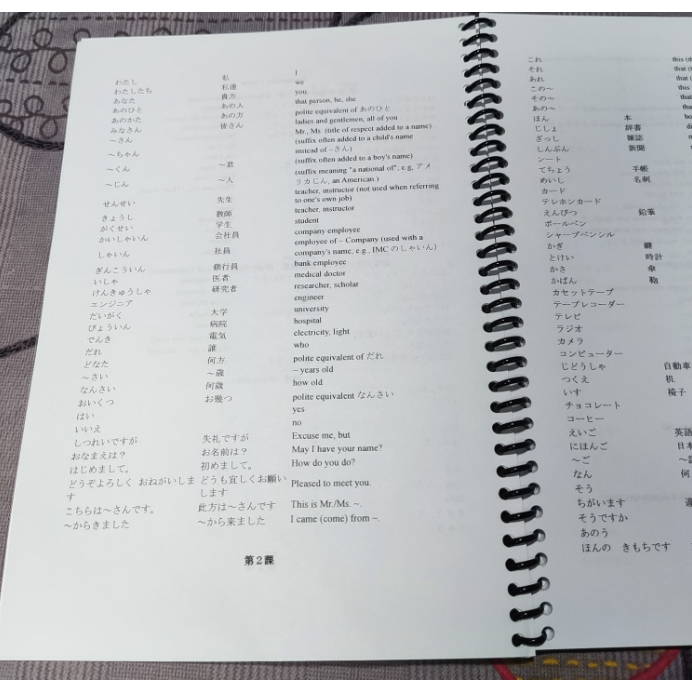 わたし 私 I
わたしたち 私達 we
あなた 貴方 you
あのひと あの人 that person, he, the
あのかた あの方 polite equivalent of あのひと
みなさん 皆さん ladies and gentlemen, all of you
～さん Mr., Ms. (title of respect added to a name)
～ちゃん (suffix often added to a child's name
instead of ～さん)
～くん ～君 (suffix often added to a boy's name)
～じん ～人 (suffix meaning "a national of", e.g, アメ
リカじん, an American )
せんせい 先生 teacher, instructor (not used when referring
to one's own job)
きょうし 教師 teacher, instructor
がくせい 学生 student
かいしゃいん 会社員 company employee
しゃいん 社員 employee of – Company (used with a
company's name, e.g., IMC のしゃいん)
ぎんこういん 銀行員 bank employee
いしゃ 医者 medical doctor
けんきゅうしゃ 研究者 researcher, scholar
エンジニア engineer
だいがく 大学 university
びょういん 病院 hospital
でんき 電気 electricity, light
だれ 誰 who
どなた 何方 polite equivalent of だれ
～さい ～歳 – years old
なんさい 何歳 how old
おいくつ お幾つ polite equivalent なんさい
はい yes
いいえ no
しつれいですが 失礼ですが Excuse me, but
おなまえは? お名前は? May I have your name?
はじめまして。 初めまして。 How do you do?
どうぞよろしく おねがいしま どうも宜しくお願い Pleased to meet you.
す します
こちらは～さんです。 此方は～さんです This is Mr./Ms. ~.
～からきました ～から来ました I came (come) from ~.
第２課
これ this (th
それ that (
あれ that (
この～ this
その～ that
あの～ that
ほん 本 bo
じしょ 辞書 d
ざっし 雑誌 m
しんぶん 新聞 n
ノート
てちょう 手帳
めいし 名刺
カード
テレホンカード
えんぴつ 鉛筆
ボールペン
シャープペンシル
かぎ 鍵
とけい 時計
かさ 傘
かばん 鞄
カセットテープ
テープレコーダー
テレビ
ラジオ
カメラ
コンピューター
じどうしゃ 自動車
つくえ 机
いす 椅子
チョコレート
コーヒー
えいご 英語
にほんご 日本
～ご ～語
なん 何
そう
ちがいます 違
そうですか
あのう
ほんの きもちです